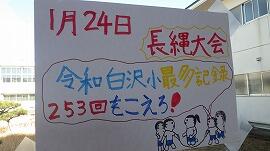 1月24日
長縄大会
令和白沢小最多記録
253回をこえろ!